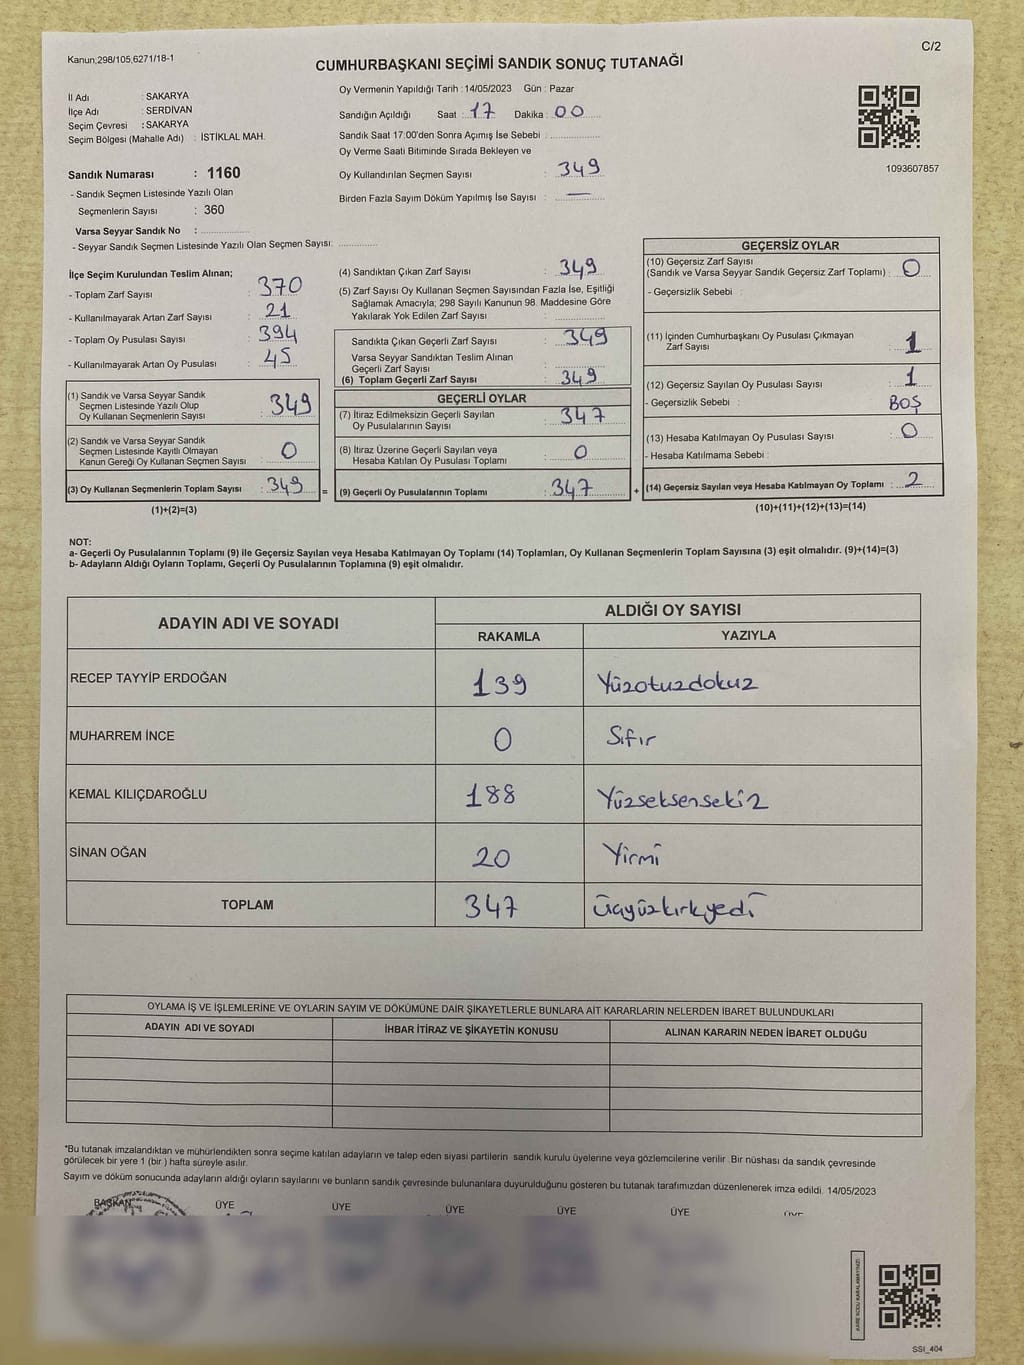 Kanun;298/105,6271/18-1
C/2
CUMHURBAŞKANI SEÇİMİ SANDIK SONUÇ TUTANAĞI
İl Adı : SAKARYA
İlçe Adı : SERDİVAN
Seçim Çevresi : SAKARYA
Seçim Bölgesi (Mahalle Adı) : İSTİKLAL MAH.
Oy Vermenin Yapıldığı Tarih : 14/05/2023 Gün : Pazar
Sandığın Açıldığı Saat : 17 Dakika : 00
Sandık Saat 17:00'den Sonra Açımış İse Sebebi :
Oy Verme Saati Bitiminde Sırada Bekleyen ve
Oy Kullandırılan Seçmen Sayısı : 349
Birden Fazla Sayım Döküm Yapılmış İse Sayısı : —
1093607857
Sandık Numarası : 1160
- Sandık Seçmen Listesinde Yazılı Olan
Seçmenlerin Sayısı : 360
Varsa Seyyar Sandık No :
- Seyyar Sandık Seçmen Listesinde Yazılı Olan Seçmen Sayısı:
İlçe Seçim Kurulundan Teslim Alınan;
- Toplam Zarf Sayısı : 370
- Kullanılmayarak Artan Zarf Sayısı : 21
- Toplam Oy Pusulası Sayısı : 394
- Kullanılmayarak Artan Oy Pusulası : 45
(1) Sandık ve Varsa Seyyar Sandık
Seçmen Listesinde Yazılı Olup
Oy Kullanan Seçmenlerin Sayısı : 349
(2) Sandık ve Varsa Seyyar Sandık
Seçmen Listesinde Kayıtlı Olmayan
Kanun Gereği Oy Kullanan Seçmen Sayısı : 0
(3) Oy Kullanan Seçmenlerin Toplam Sayısı : 349 =
(1)+(2)=(3)
(4) Sandıktan Çıkan Zarf Sayısı : 349
(5) Zarf Sayısı Oy Kullanan Seçmen Sayısından Fazla İse, Eşitliği
Sağlamak Amacıyla; 298 Sayılı Kanunun 98. Maddesine Göre
Yakılarak Yok Edilen Zarf Sayısı :
Sandıkta Çıkan Geçerli Zarf Sayısı : 349
Varsa Seyyar Sandıktan Teslim Alınan
Geçerli Zarf Sayısı :
(6) Toplam Geçerli Zarf Sayısı : 349
GEÇERLİ OYLAR
(7) İtiraz Edilmeksizin Geçerli Sayılan
Oy Pusulalarının Sayısı : 347
(8) İtiraz Üzerine Geçerli Sayılan veya
Hesaba Katılan Oy Pusulası Toplamı : 0
(9) Geçerli Oy Pusulalarının Toplamı : 347 +
GEÇERSİZ OYLAR
(10) Geçersiz Zarf Sayısı
(Sandık ve Varsa Seyyar Sandık Geçersiz Zarf Toplamı) : 0
- Geçersizlik Sebebi :
(11) İçinden Cumhurbaşkanı Oy Pusulası Çıkmayan
Zarf Sayısı : 1
(12) Geçersiz Sayılan Oy Pusulası Sayısı : 1
- Geçersizlik Sebebi : BOŞ
(13) Hesaba Katılmayan Oy Pusulası Sayısı : 0
- Hesaba Katılmama Sebebi :
(14) Geçersiz Sayılan veya Hesaba Katılmayan Oy Toplamı : 2
(10)+(11)+(12)+(13)=(14)
NOT:
a- Geçerli Oy Pusulalarının Toplamı (9) ile Geçersiz Sayılan veya Hesaba Katılmayan Oy Toplamı (14) Toplamları, Oy Kullanan Seçmenlerin Toplam Sayısına (3) eşit olmalıdır. (9)+(14)=(3)
b- Adayların Aldığı Oyların Toplamı, Geçerli Oy Pusulalarının Toplamına (9) eşit olmalıdır.
ADAYIN ADI VE SOYADI
ALDIĞI OY SAYISI
RAKAMLA YAZIYLA
RECEP TAYYİP ERDOĞAN 139 Yüzotuzdokuz
MUHARREM İNCE 0 Sıfır
KEMAL KILIÇDAROĞLU 188 Yüzseksensekiz
SİNAN OĞAN 20 Yirmi
TOPLAM 347 Üçyüzkırkyedi
OYLAMA İŞ VE İŞLEMLERİNE VE OYLARIN SAYIM VE DÖKÜMÜNE DAİR ŞİKAYETLERLE BUNLARA AİT KARARLARIN NELERDEN İBARET BULUNDUKLARI
ADAYIN ADI VE SOYADI İHBAR İTİRAZ VE ŞİKAYETİN KONUSU ALINAN KARARIN NEDEN İBARET OLDUĞU
*Bu tutanak imzalandıktan ve mühürlendikten sonra seçime katılan adayların ve talep eden siyasi partilerin sandık kurulu üyelerine veya gözlemcilerine verilir. Bir nüshası da sandık çevresinde
görülecek bir yere 1 (bir ) hafta süreyle asılır.
Sayım ve döküm sonucunda adayların aldığı oyların sayılarını ve bunların sandık çevresinde bulunanlara duyurulduğunu gösteren bu tutanak tarafımızdan düzenlenerek imza edildi. 14/05/2023
BAŞKAN ÜYE ÜYE ÜYE ÜYE ÜYE ÜYE
KARE KODU KARALAMAYINIZ!
SSI_404